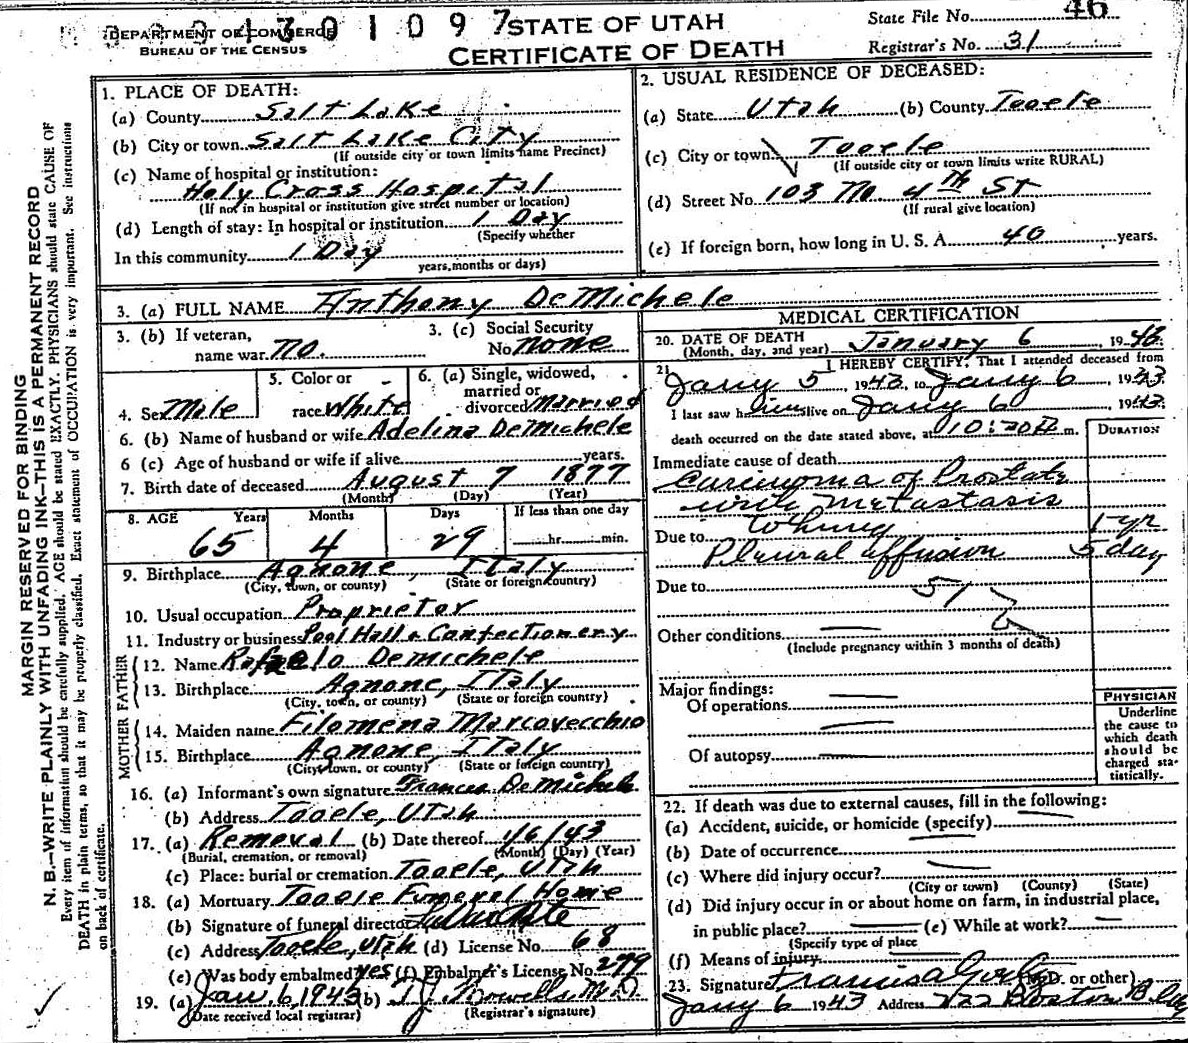 DEPARTMENT OF COMMERCE
BUREAU OF THE CENSUS
4301097
STATE OF UTAH
CERTIFICATE OF DEATH
State File No. 46
Registrar's No. 31
MARGIN RESERVED FOR BINDING
N. B.—WRITE PLAINLY WITH UNFADING INK—THIS IS A PERMANENT RECORD
Every item of information should be carefully supplied. AGE should be stated EXACTLY. PHYSICIANS should state CAUSE OF
DEATH in plain terms, so that it may be properly classified. Exact statement of OCCUPATION is very important. See instructions
on back of certificate.
1. PLACE OF DEATH:
(a) County Salt Lake
(b) City or town Salt Lake City
(If outside city or town limits name Precinct)
(c) Name of hospital or institution:
Holy Cross Hospital
(If not in hospital or institution give street number or location)
(d) Length of stay: In hospital or institution 1 Day
(Specify whether
In this community 1 Day
years, months or days)
2. USUAL RESIDENCE OF DECEASED:
(a) State Utah (b) County Tooele
(c) City or town Tooele
(If outside city or town limits write RURAL)
(d) Street No. 103 No. 4th St
(If rural give location)
(e) If foreign born, how long in U. S. A. 40 years.
3. (a) FULL NAME Anthony DeMichele
3. (b) If veteran,
name war no.
3. (c) Social Security
No. none
4. Sex Male
5. Color or
race White
6. (a) Single, widowed,
married or
divorced Married
6. (b) Name of husband or wife Adelina DeMichele
6 (c) Age of husband or wife if alive years.
7. Birth date of deceased August 7 1877
(Month) (Day) (Year)
8. AGE Years Months Days If less than one day
65 4 29 hr. min.
9. Birthplace Agnone, Italy
(City, town, or county) (State or foreign country)
10. Usual occupation Proprietor
11. Industry or business Pool Hall & Confectionery
FATHER
12. Name Rafaelo DeMichele
13. Birthplace Agnone, Italy
(City, town, or county) (State or foreign country)
MOTHER
14. Maiden name Filomena Marcovecchio
15. Birthplace Agnone, Italy
(City, town, or county) (State or foreign country)
16. (a) Informant's own signature Frances DeMichele
(b) Address Tooele, Utah
17. (a) Removal (b) Date thereof 1/6/43
(Burial, cremation, or removal) (Month) (Day) (Year)
(c) Place: burial or cremation Tooele, Utah
18. (a) Mortuary Tooele Funeral Home
(b) Signature of funeral director
(c) Address Tooele, Utah (d) License No. 68
(e) Was body embalmed? yes (f) Embalmer's License No. 299
19. (a) Jan. 6, 1943 (b) T. J. Howells M.D.
(Date received local registrar) (Registrar's signature)
MEDICAL CERTIFICATION
20. DATE OF DEATH
(Month, day, and year) January 6, 1943
21 I HEREBY CERTIFY, That I attended deceased from
Jany 5, 1943, to Jany 6, 1943
I last saw him alive on Jany 6, 1943
death occurred on the date stated above, at 10:20 m.
DURATION
Immediate cause of death
Carcinoma of Prostate
with Metastasis
to lung 1 yr
Due to
Plural affusion 5 day
Due to 51
Other conditions —
(Include pregnancy within 3 months of death)
Major findings:
Of operations —
Of autopsy —
PHYSICIAN
Underline
the cause to
which death
should be
charged sta-
tistically.
22. If death was due to external causes, fill in the following:
(a) Accident, suicide, or homicide (specify) —
(b) Date of occurrence —
(c) Where did injury occur? —
(City or town) (County) (State)
(d) Did injury occur in or about home on farm, in industrial place,
in public place? — (e) While at work? —
(Specify type of place
(f) Means of injury
23. Signature (M.D. or other)
Jany 6 1943 Address Boston Bldg